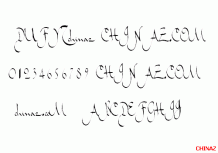 DUFYC dunaz CHINAZ.COM
0123456789 CHINAZ.COM
dunazcoM ABCDEFGHIJ
CHINAZ